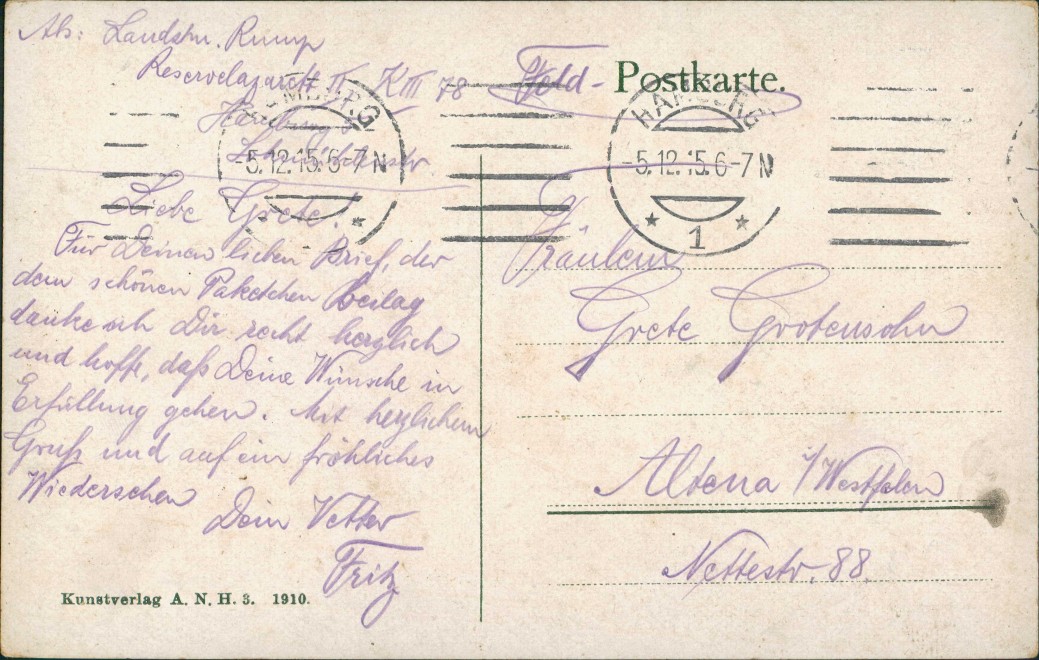 Abs: Landstm. Rump
Reservelazarett II, K III 78
Hamburg
Liebe Grete!
Für Deinen lieben Brief, der
dem schönen Paketchen beilag
danke ich Dir recht herzlich
und hoffe, daß Deine Wünsche in
Erfüllung gehen. Mit herzlichem
Gruß und auf ein fröhliches
Wiedersehen
Dein Vetter
Fritz
Kunstverlag A. N. H. 3. 1910.
HAMBURG
-5.12.15.6-7N
Feld- Postkarte.
HAMBURG
-5.12.15.6-7N
1
Fräulein
Grete Grotensohn
Altena i/Westfalen
Nettestr. 88.